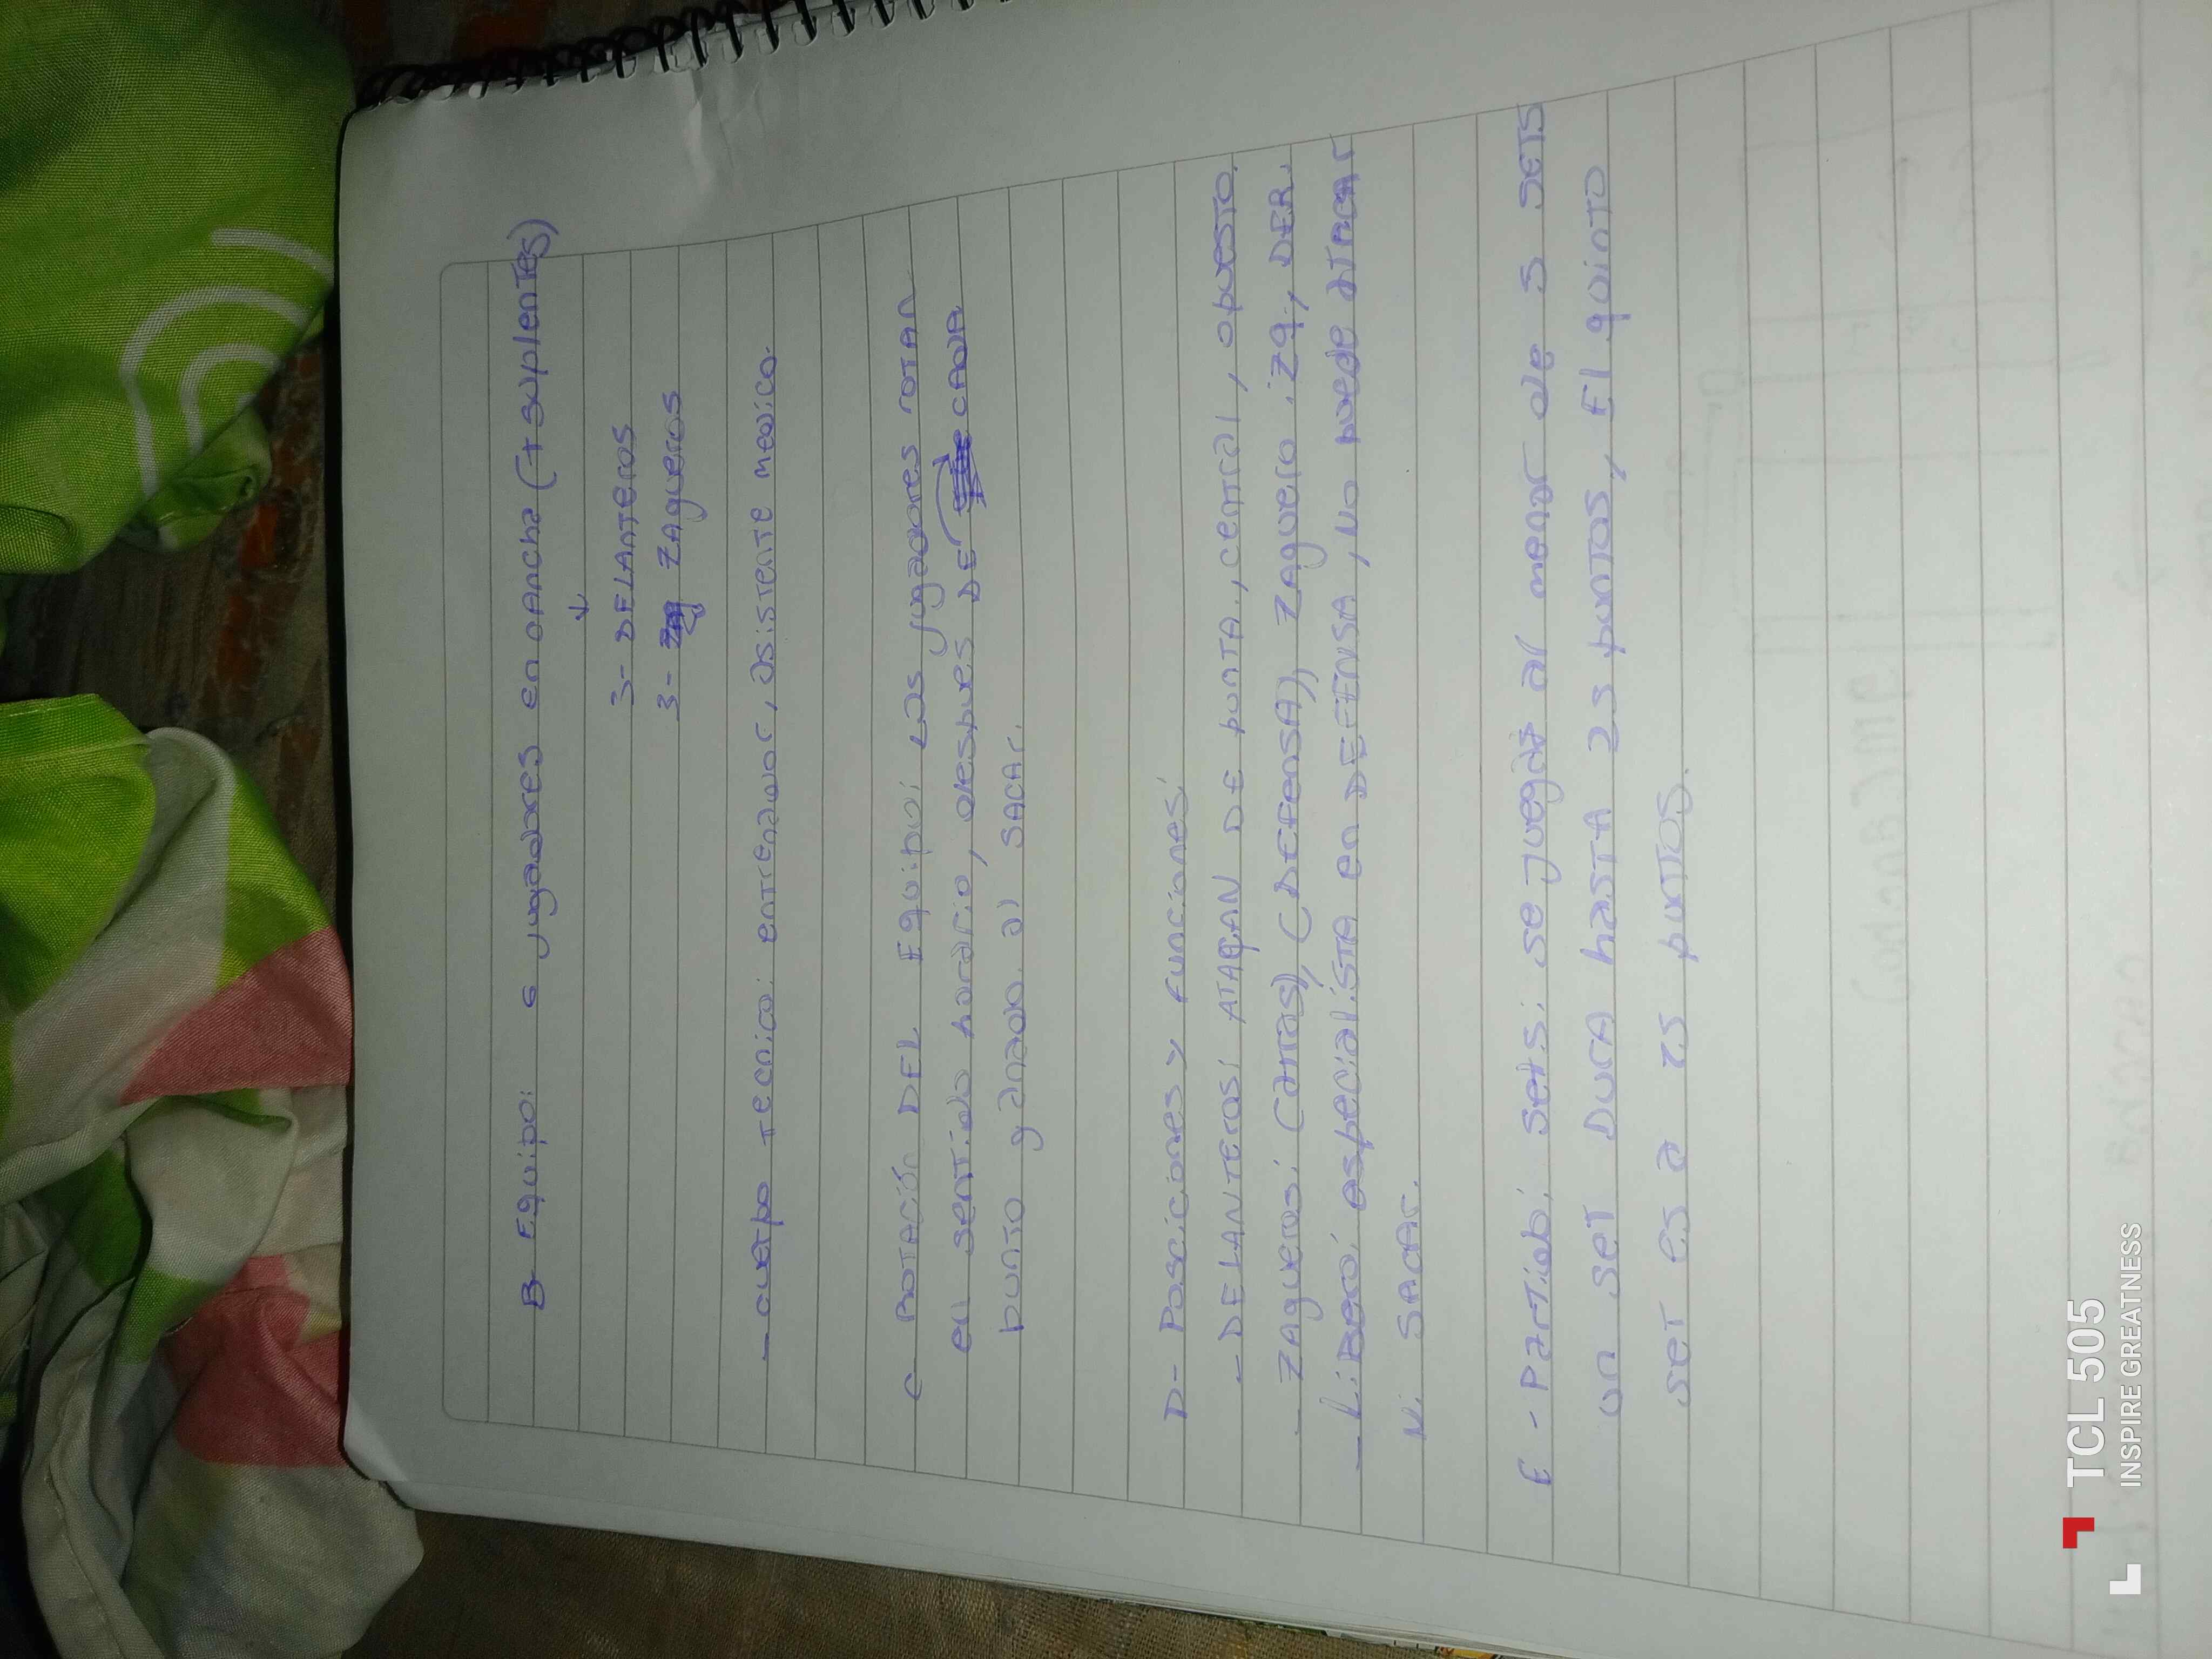 B- Equipo: 6 jugadores en cancha (+ suplentes)
↓
3- DELANTEROS
3- ZAgueros
- cuerpo Tecnico: entrenador, asistente medico.
C- ROTACión DEL Equipo: Los jugadores rotan
en sentido horario, despues DE CADA
punto ganado al SACAr.
D- Posiciones y Funciones:
- DELANTEROS: ATACAN DE punTA, central, opuesto.
- ZAgueros: (DEFensA) ZAguero izq, DER.
- LiBero: especialisTA en DEFENSA, No puede ATACAr
Ni SACAr.
E - Partido: sets: se juega al menor de 5 SETS
un set DurA hasTA 25 punTOS, El quinto
set es a 15 punTOS.
TCL 505
INSPIRE GREATNESS